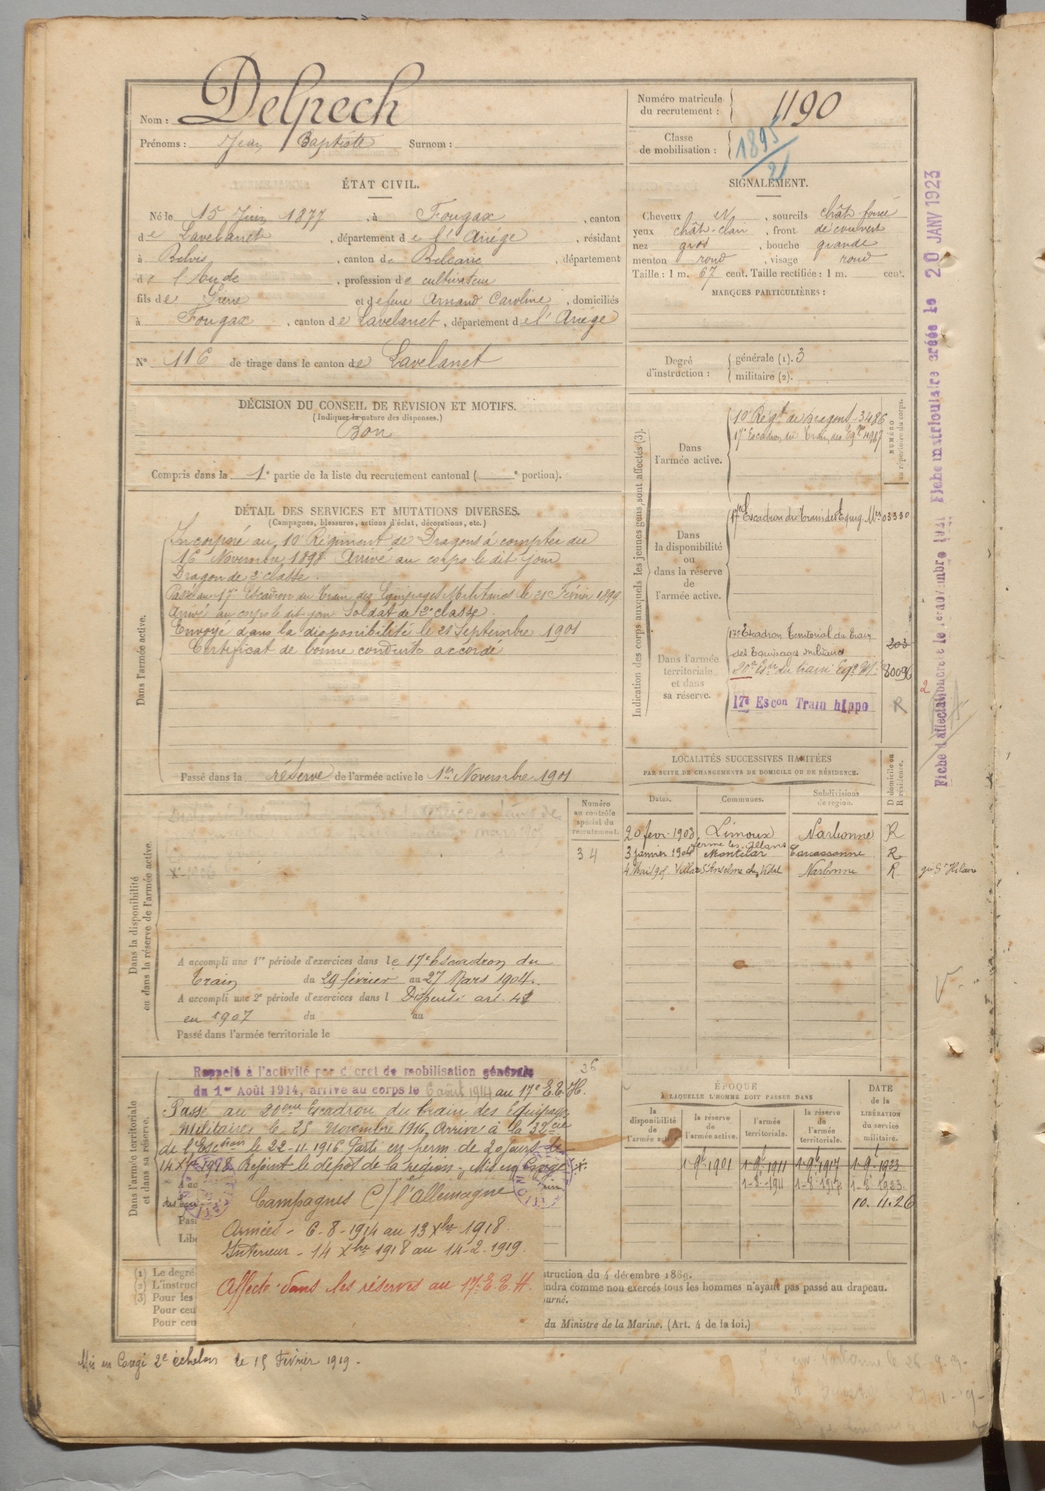 Nom : Delpech
Prénoms : Jean Baptiste Surnom :
Numéro matricule du recrutement : 1190
Classe de mobilisation : 1895/21
ÉTAT CIVIL.
Né le 15 Juin 1877, à Fougax, canton
de Lavelanet, département de l'Ariège, résidant
à Belvis, canton de Belcaire, département
de l'Aude, profession de cultivateur
fils de Pierre et de feue Arnaud Caroline, domiciliés
à Fougax, canton de Lavelanet, département de l'Ariège
N° 116 de tirage dans le canton de Lavelanet
SIGNALEMENT.
Cheveux N, sourcils chât. foncé
yeux chât-clair, front découvert
nez gros, bouche grande
menton rond, visage rond
Taille : 1 m. 67 cent. Taille rectifiée : 1 m. cent.
MARQUES PARTICULIÈRES :
Degré d'instruction : générale (1). 3
militaire (2).
DÉCISION DU CONSEIL DE RÉVISION ET MOTIFS.
(Indiquer la nature des dispenses.)
Bon
Compris dans la 1e partie de la liste du recrutement cantonal ( e portion).
DÉTAIL DES SERVICES ET MUTATIONS DIVERSES.
(Campagnes, blessures, actions d'éclat, décorations, etc.)
Dans l'armée active.
Incorporé au 10e Régiment de Dragons à compter du
16 Novembre 1898 Arrivé au corps le dit jour
Dragon de 2e classe.
Passé au 17e Escadron du Train des Equipages Militaires le 21 Février 1899
Arrivé au corps le dit jour Soldat de 2e classe.
Envoyé dans la disponibilité le 21 Septembre 1901
Certificat de bonne conduite accordé
Passé dans la réserve de l'armée active le 1er Novembre 1901
Indication des corps auxquels les jeunes gens sont affectés (3).
NUMÉRO au répertoire du corps.
Dans l'armée active.
10e Régt de Dragons - 3486
17e Escadron du Train des Eqges 4967
Dans la disponibilité ou dans la réserve de l'armée active.
17e Escadron du Train des Equip. Mres 03330
Dans l'armée territoriale et dans sa réserve.
17e Escadron Territorial du Train
des Equipages militaires
20e Esc. du train Eqp. M. 8009
17e Escon Train hippo R
LOCALITÉS SUCCESSIVES HABITÉES
PAR SUITE DE CHANGEMENTS DE DOMICILE OU DE RÉSIDENCE.
Dates. Communes. Subdivisions de région. D domicile ou R résidence.
20 fevr. 1903 Limoux Narbonne R
3 janvier 1904 Montclar Carcassonne R
4 Mai 1905 Villar St Anselme Narbonne R
Numéro au contrôle spécial du recrutement.
34
Dans la disponibilité ou dans la réserve de l'armée active.
A accompli une 1re période d'exercices dans le 17e Escadron du
Train du 29 février au 27 Mars 1904.
A accompli une 2e période d'exercices dans l Dispensé art. 41
en 1907 du au
Passé dans l'armée territoriale le
Dans l'armée territoriale et dans sa réserve.
Rappelé à l'activité par décret de mobilisation générale
du 1er Août 1914, arrive au corps le 6 août 1914 au 17e E.T.H.
Passé au 20ème Escadron du train des Equipages
Militaires le 25 Novembre 1916. Arrivé à la 32e Cie
de l'Escadron le 22-11-1916. Parti en perm. de 20 jours le
14 Xbre 1918. Rejoint le dépôt de la région.
Campagnes C/ l'Allemagne
Armées - 6-8-1914 au 13 Xbre 1918.
Intérieur - 14 Xbre 1918 au 14-2-1919.
Affecté dans les réserves au 17e E.T.H.
ÉPOQUE
À LAQUELLE L'HOMME DOIT PASSER DANS
la disponibilité de l'armée active. la réserve de l'armée active. l'armée territoriale. la réserve de l'armée territoriale. DATE de la LIBÉRATION du service militaire.
1-9bre 1901 1-9bre 1911 1-9bre 1917 1-9bre 1923
10.11.26
(1) Le degré
(2) L'instruct
(3) Pour les
Pour ceux
Pour ceux
struction du 4 décembre 1889.
endra comme non exercés tous les hommes n'ayant pas passé au drapeau.
ourné.
du Ministre de la Marine. (Art. 4 de la loi.)
Mis en Congé 2e échelon le 15 Février 1919.
Fiche matriculaire créée le 20 JANV 1923